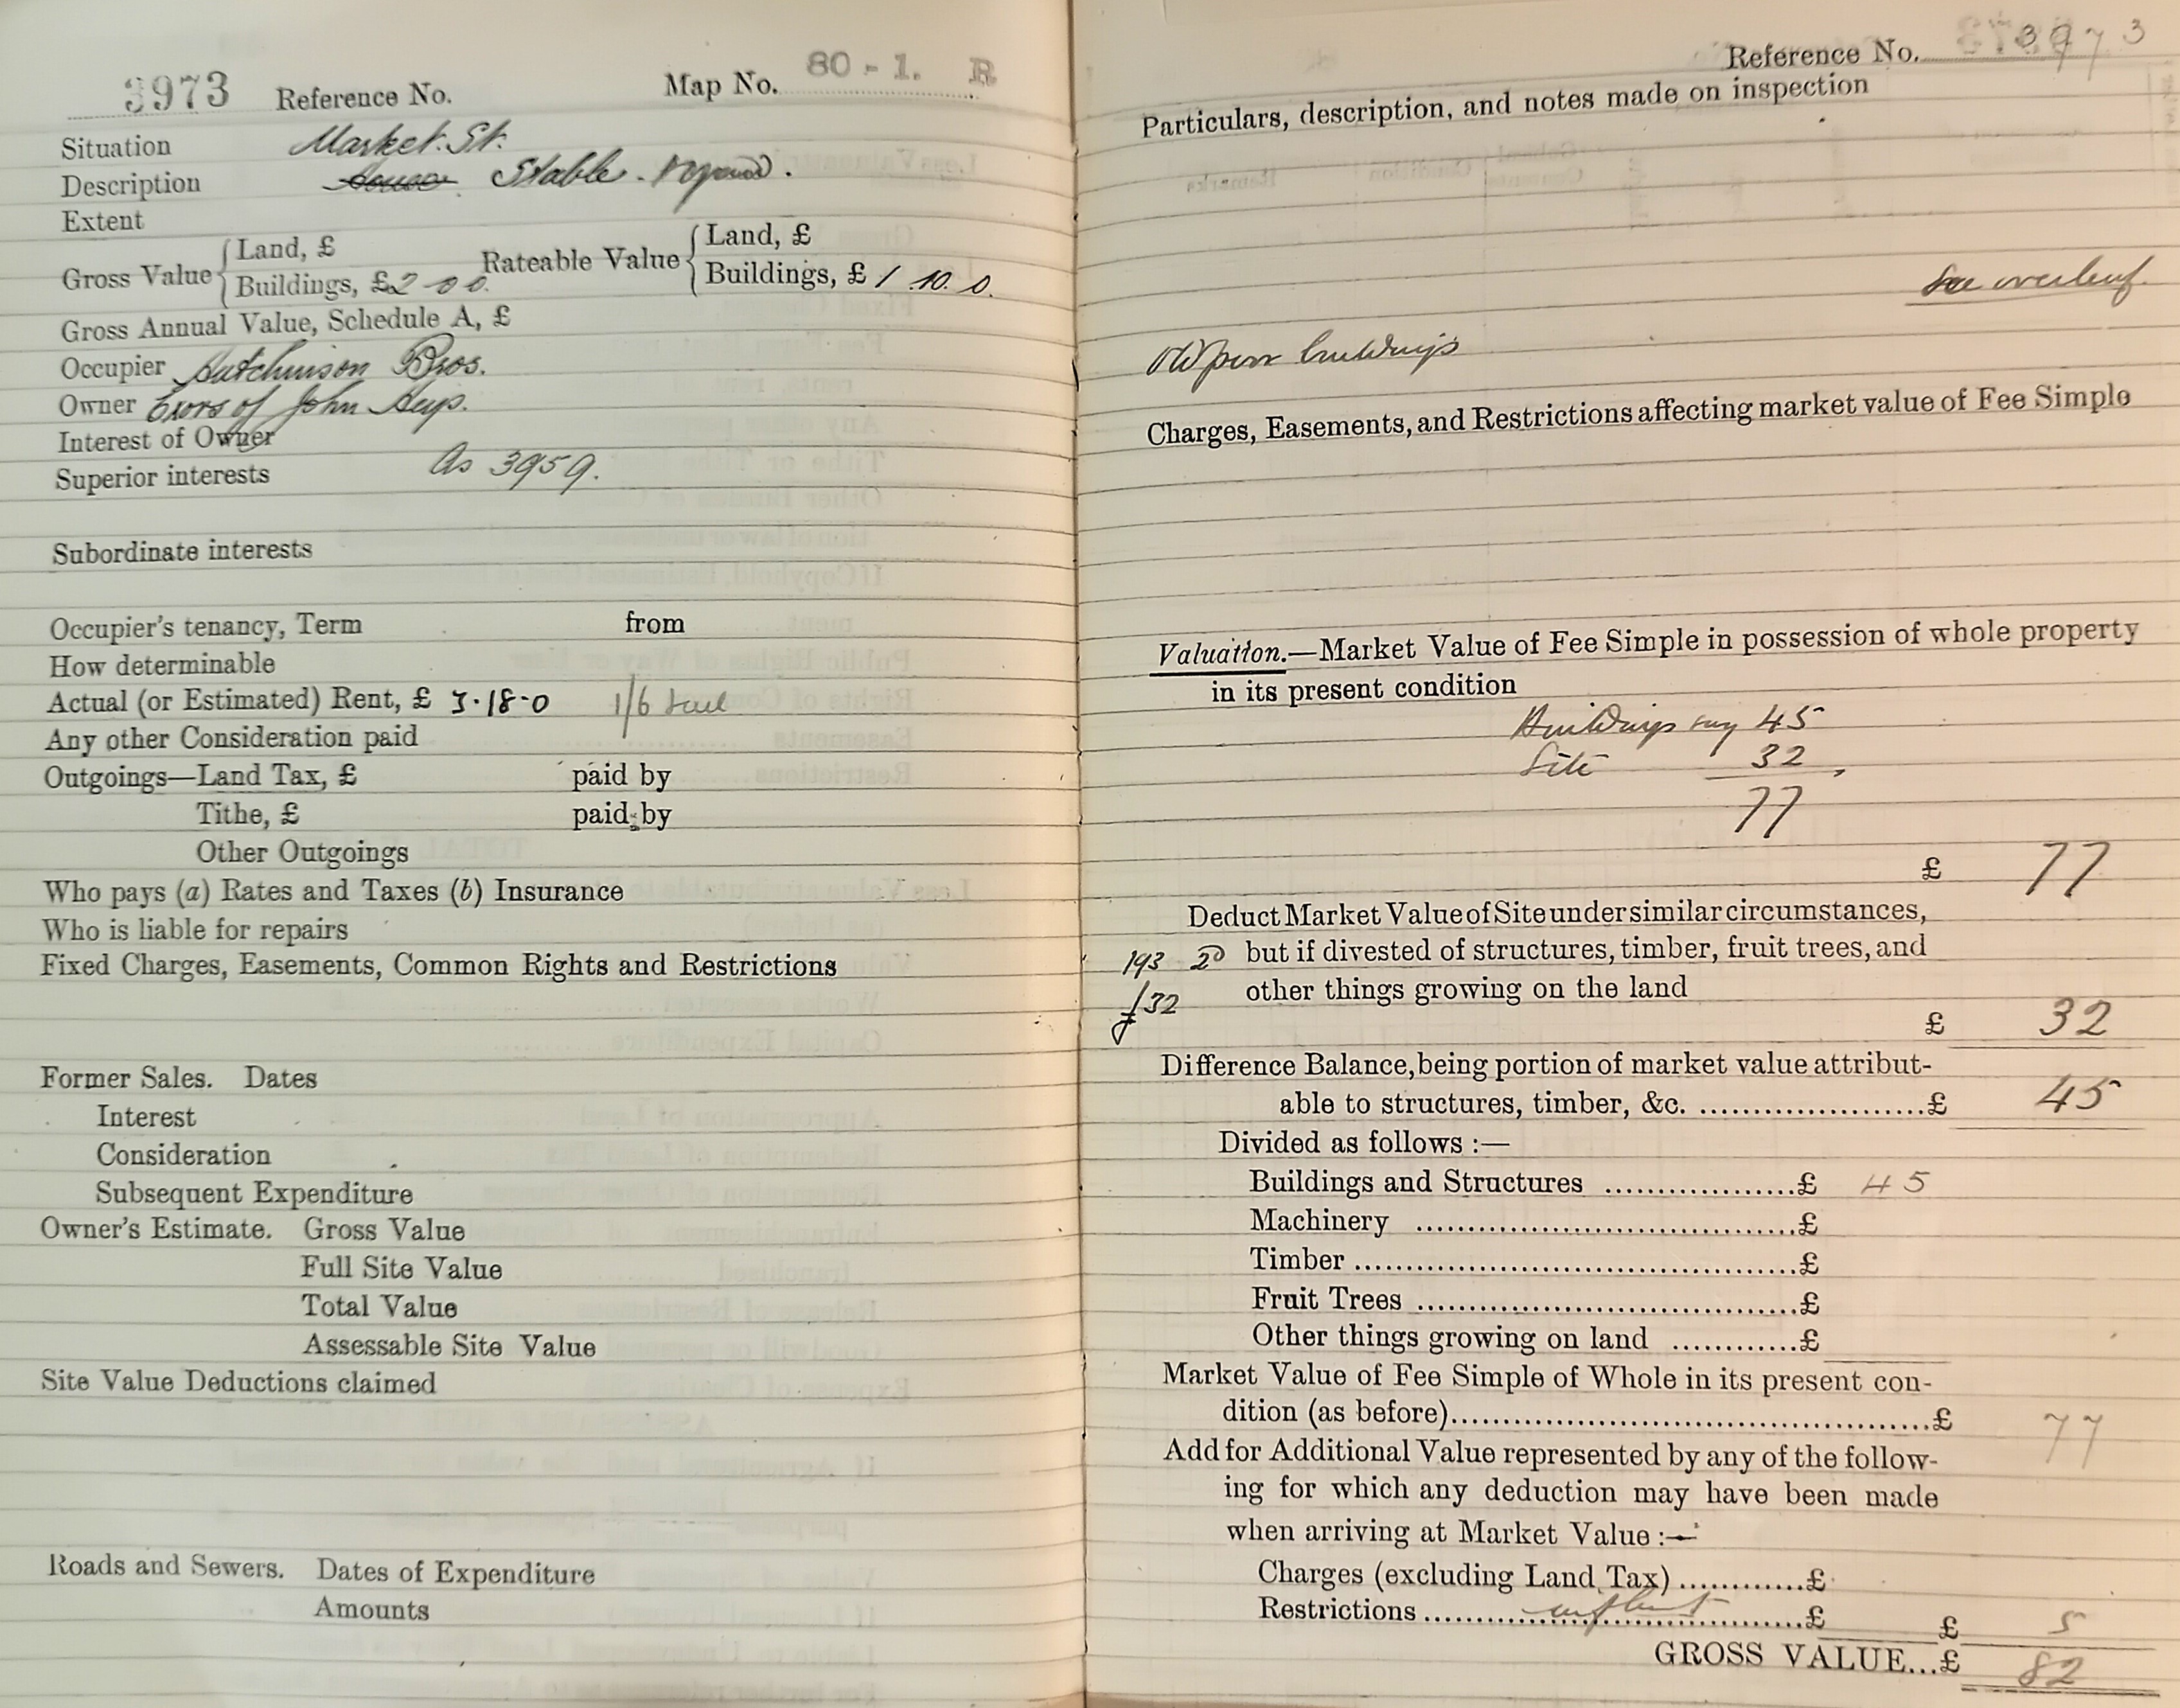 3973 Reference No. Map No. 80-1. R
Situation Market. St.
Description House Stable.
Extent
Gross Value { Land, £ Rateable Value { Land, £
Buildings, £2-0 0. Buildings, £ 1. 10. 0.
Gross Annual Value, Schedule A, £
Occupier Hutchinson Bros.
Owner Exors of John Heys.
Interest of Owner
Superior interests As 3959.
Subordinate interests
Occupier's tenancy, Term from
How determinable
Actual (or Estimated) Rent, £ 3.18-0 1/6
Any other Consideration paid
Outgoings—Land Tax, £ paid by
Tithe, £ paid by
Other Outgoings
Who pays (a) Rates and Taxes (b) Insurance
Who is liable for repairs
Fixed Charges, Easements, Common Rights and Restrictions
Former Sales. Dates
Interest
Consideration
Subsequent Expenditure
Owner's Estimate. Gross Value
Full Site Value
Total Value
Assessable Site Value
Site Value Deductions claimed
Roads and Sewers. Dates of Expenditure
Amounts
Reference No. 3973
Particulars, description, and notes made on inspection
See overleaf.
Old poor buildings
Charges, Easements, and Restrictions affecting market value of Fee Simple
Valuation.—Market Value of Fee Simple in possession of whole property
in its present condition
Buildings say 45
Site 32
77
£ 77
Deduct Market Value of Site under similar circumstances,
193 but if divested of structures, timber, fruit trees, and
£32 other things growing on the land
£ 32
Difference Balance, being portion of market value attribut-
able to structures, timber, &c. ......................£ 45
Divided as follows :—
Buildings and Structures ...................£ 45
Machinery ......................................£
Timber ............................................£
Fruit Trees ......................................£
Other things growing on land ............£
Market Value of Fee Simple of Whole in its present con-
dition (as before)................................................£ 77
Add for Additional Value represented by any of the follow-
ing for which any deduction may have been made
when arriving at Market Value :—
Charges (excluding Land Tax) ............£
Restrictions .....................................£ £ 5
GROSS VALUE...£ 82